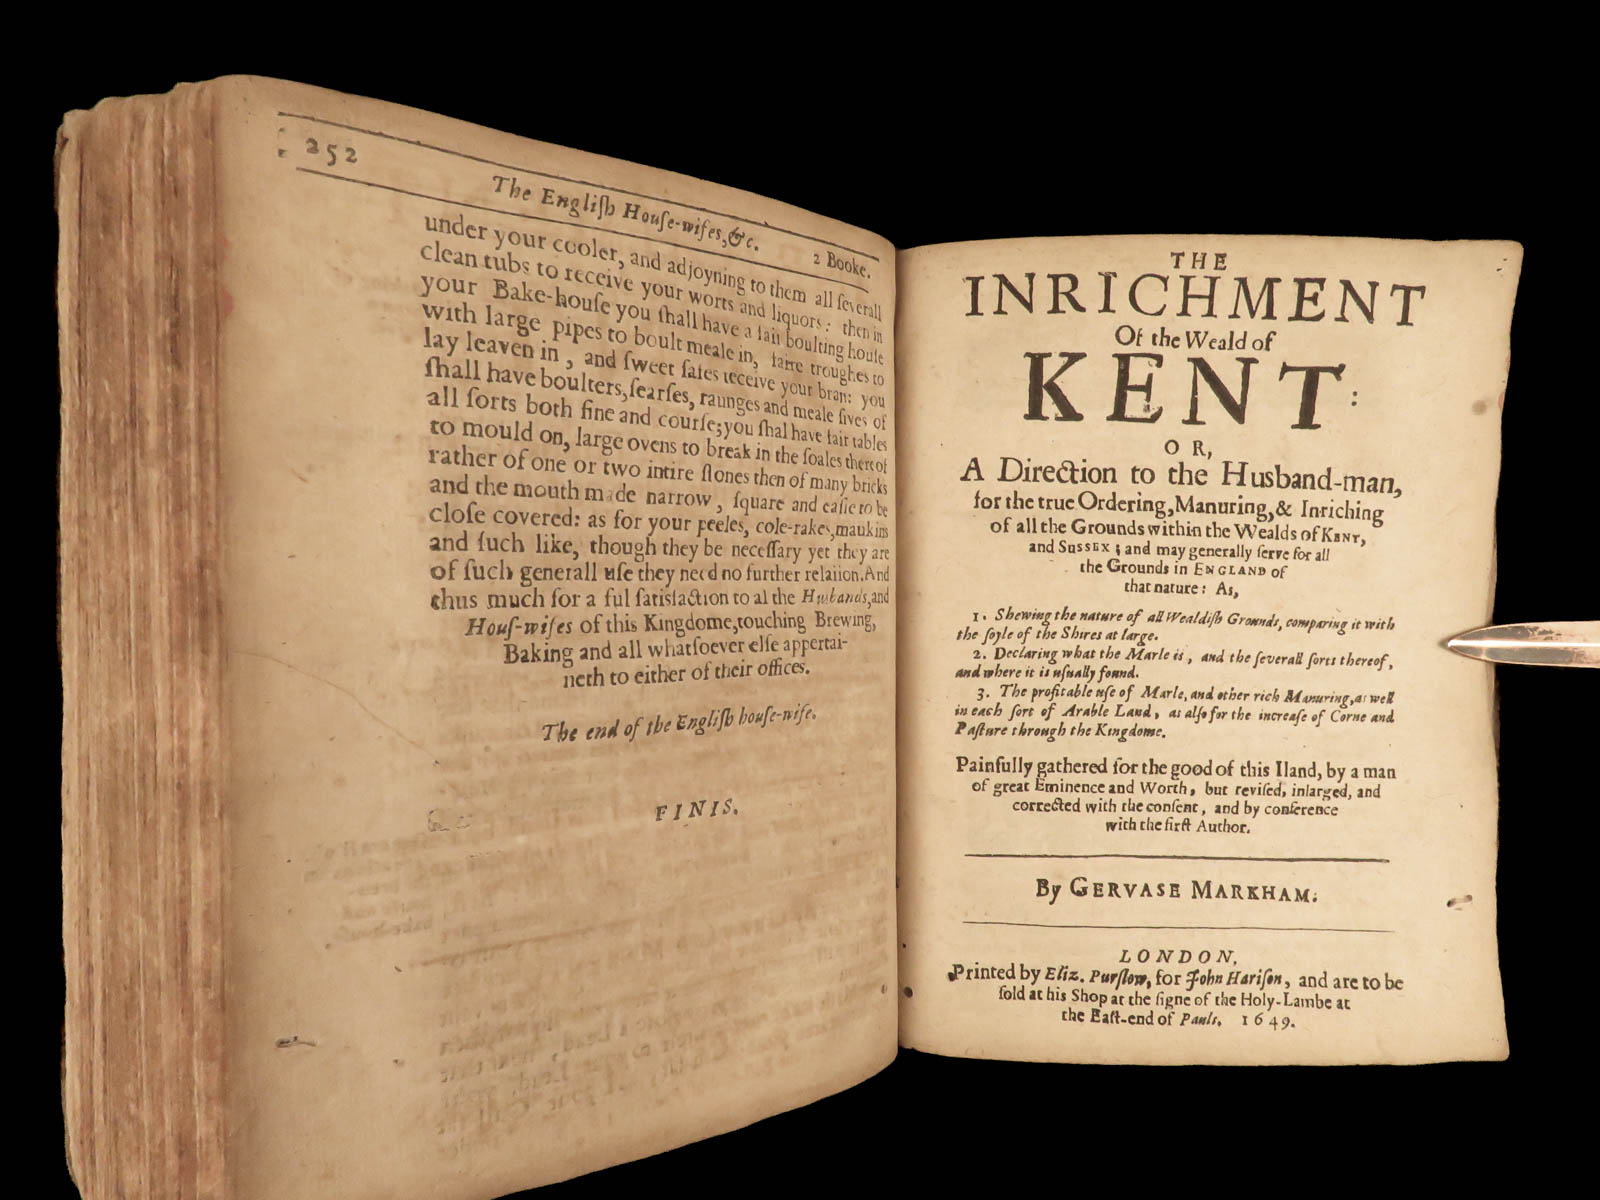 252
The Engliſh Houſe-wifes,&c.
2 Booke.
under your cooler, and adjoyning to them all ſeverall
clean tubs to receive your worts and liquors: then in
your Bake-houſe you ſhall have a fair boulting houſe
with large pipes to boult meale in, faire troughes to
lay leaven in, and ſweet ſafes receive your bran: you
ſhall have boulters, ſearſes, raunges and meale ſives of
all ſorts both fine and courſe; you ſhal have fair tables
to mould on, large ovens to break in the ſoales thereof
rather of one or two intire ſtones then of many bricks
and the mouth made narrow, ſquare and eaſie to be
cloſe covered: as for your peeles, cole-rakes, maukins
and ſuch like, though they be neceſſary yet they are
of ſuch generall uſe they need no further relation. And
thus much for a ful ſatisfaction to al the Husbands, and
Houſ-wifes of this Kingdome, touching Brewing,
Baking and all whatſoever elſe appertai-
neth to either of their offices.
The end of the Engliſh houſe-wife.
FINIS.
THE
INRICHMENT
Of the Weald of
KENT:
OR,
A Direction to the Husband-man,
for the true Ordering, Manuring, & Inriching
of all the Grounds within the Wealds of KENT,
and SUSSEX; and may generally ſerve for all
the Grounds in ENGLAND of
that nature: As,
1. Shewing the nature of all Wealdiſh Grounds, comparing it with
the ſoyle of the Shires at large.
2. Declaring what the Marle is, and the ſeverall ſorts thereof,
and where it is uſually found.
3. The profitable uſe of Marle, and other rich Manuring, as well
in each ſort of Arable Land, as alſo for the increaſe of Corne and
Paſture through the Kingdome.
Painfully gathered for the good of this Iland, by a man
of great Eminence and Worth, but reviſed, inlarged, and
corrected with the conſent, and by conference
with the firſt Author.
By GERVASE MARKHAM.
LONDON,
Printed by Eliz. Purſlow, for John Hariſon, and are to be
ſold at his Shop at the ſigne of the Holy-Lambe at
the Eaſt-end of Pauls. 1649.